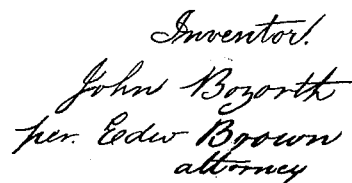 Inventor.
John Bozorth
per. Edw Brown
attorney